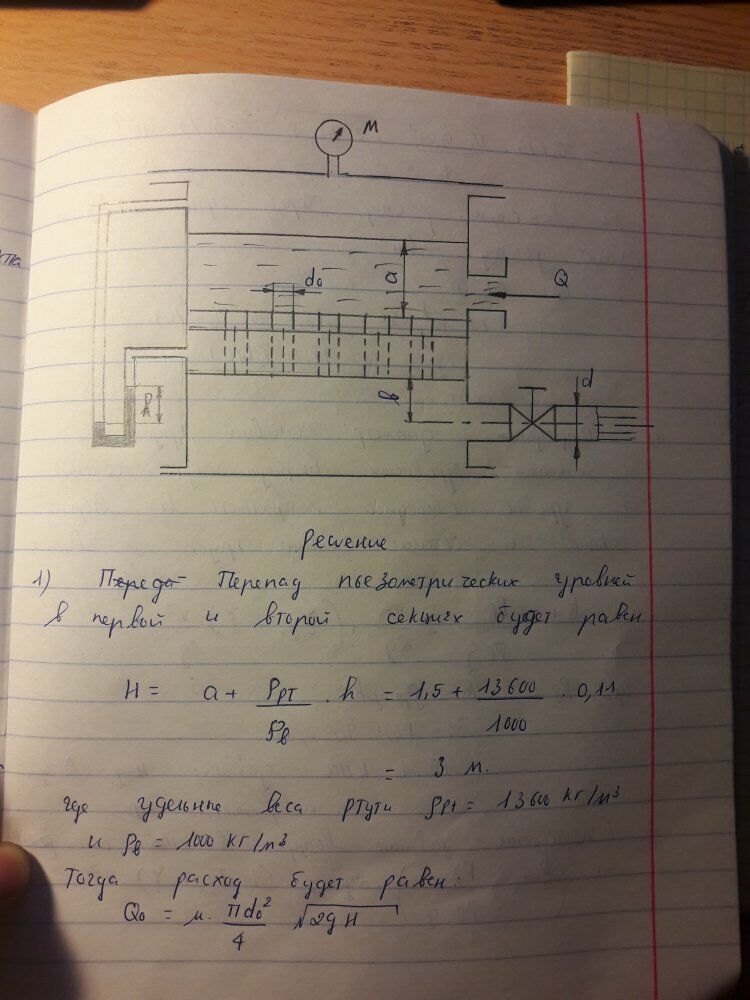 M
d₀
a
Q
h
в
d
Решение
1) Передат Перепад пьезометрических уровней
в первой и второй секциях будет равен
H = a + ρрт/ρв · h = 1,5 + 13600/1000 · 0,11
= 3 м.
где удельные веса ртути ρрт = 13600 кг/м³
и ρв = 1000 кг/м³
Тогда расход будет равен:
Q₀ = μ · πd₀²/4 √2gH